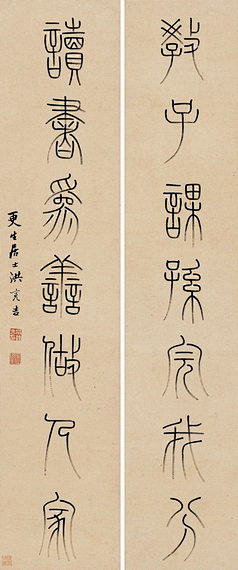 敎子課孫完我分
讀書爲善做人家
更生居士洪亮吉